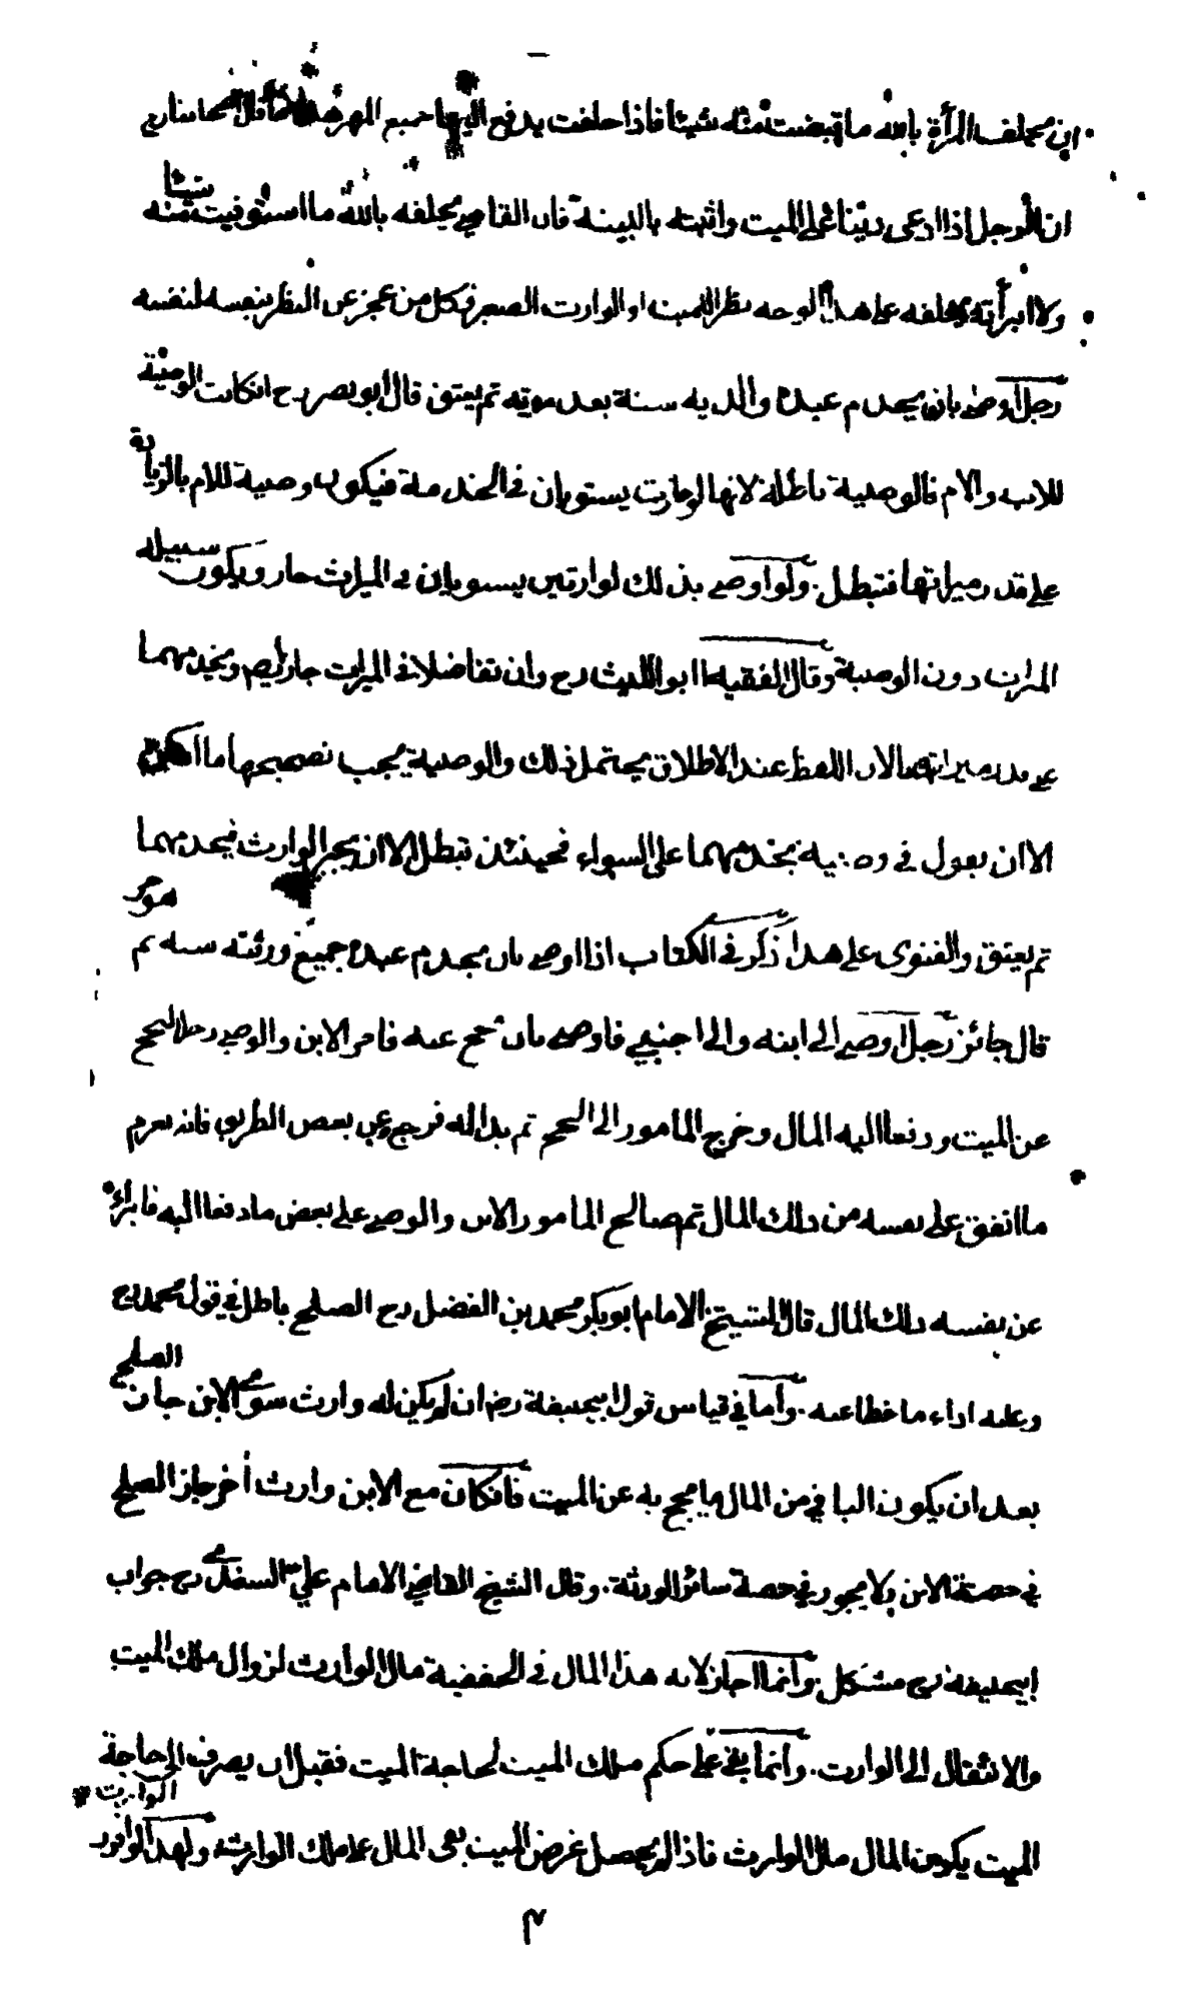 ان يحلف المرأة بالله ما قبضت منه شيئا فاذا حلفت يدفع اليها جميع المهر
ان الرجل اذا ادعى دينا على الميت واثبته بالبينة فان القاضي يحلفه بالله ما استوفيت منه شيئا
ولا ابرأته يحلفه على هذا الوجه نظر للميت او الوارث الصغير فكل من عجز عن النظر بنفسه لنفسه
رجل اوصى بان يخدم عبده والديه سنة بعد موته ثم يعتق قال ابو نصر رح ان كانت الوصية
للاب والام فالوصية باطلة لانها لو جازت يستويان في الخدمة فيكون وصية للام بالزيادة
على قدر ميراثها فتبطل ولو اوصى بذلك لوارثين يستويان في الميراث جاز ويكون سبيله
الميراث دون الوصية وقال الفقيه ابو الليث رح وان تفاضلا في الميراث جاز ايضا ويخدمهما
على قدر ميراثهما لان اللفظ عند الاطلاق يحتمل ذلك والوصية يجب تصحيحها ما امكن
الا ان يقول في وصيته يخدمهما على السواء فحينئذ تبطل الا ان يجيز الوارث فيخدمهما
ثم يعتق والفتوى على هذا ذكر في الكتاب اذا اوصى بان يخدم عبده جميع ورثته سنة ثم هو حر
قال جائز رجل اوصى الى ابنه والى اجنبي فاوصى بان يحج عنه فامر الابن والوصي رجلا ليحج
عن الميت ودفعا اليه المال وخرج المامور الى الحج ثم بدا له فرجع عن بعض الطريق فانه يغرم
ما انفق على نفسه من ذلك المال ثم صالح المامور الابن والوصي على بعض ما دفعا اليه فابرأه
عن نفسه ذلك المال قال الشيخ الامام ابو بكر محمد بن الفضل رح الصلح باطل في قول محمد رح
وعليه اداء ما حطا عنه واما في قياس قول ابي حنيفة رض ان لم يكن له وارث سوى الابن جاز الصلح
بعد ان يكون الباقي من المال ما يحج به عن الميت فان كان مع الابن وارث آخر جاز الصلح
في حصة الابن ولا يجوز في حصة سائر الورثة وقال الشيخ القاضي الامام علي السغدي رح جواب
ابي حنيفة رح مشكل وانما اجاز لانه هذا المال في الحقيقة مال الوارث لزوال ملك الميت
والانتقال الى الوارث وانما بقي على حكم ملك الميت لحاجة الميت فقبل ان يصرف الى حاجة
الميت يكون المال مال الوارث فاذا لم يحصل غرض الميت بقي المال على ملك الوارث ولهذا لو اقر الوارث